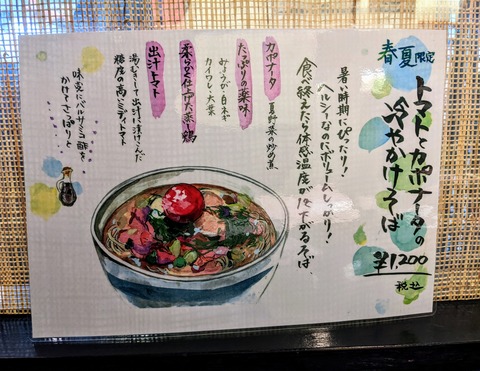 春夏限定
トマトとカポナータの
冷やかけそば
¥1,200
税込
暑い時期にぴったり!
ヘルシーなのにボリュームしっかり!
食べ終えたら体感温度が1℃下がるそば。
カポナータ
夏野菜の炒め煮
たっぷりの薬味
みょうが・白ネギ
カイワレ・大葉
柔らかく仕上げた蒸し鶏
出汁トマト
湯むきして出汁に漬けこんだ
糖度の高いミディトマト
味変にバルサミコ酢を
かけてさっぱりと